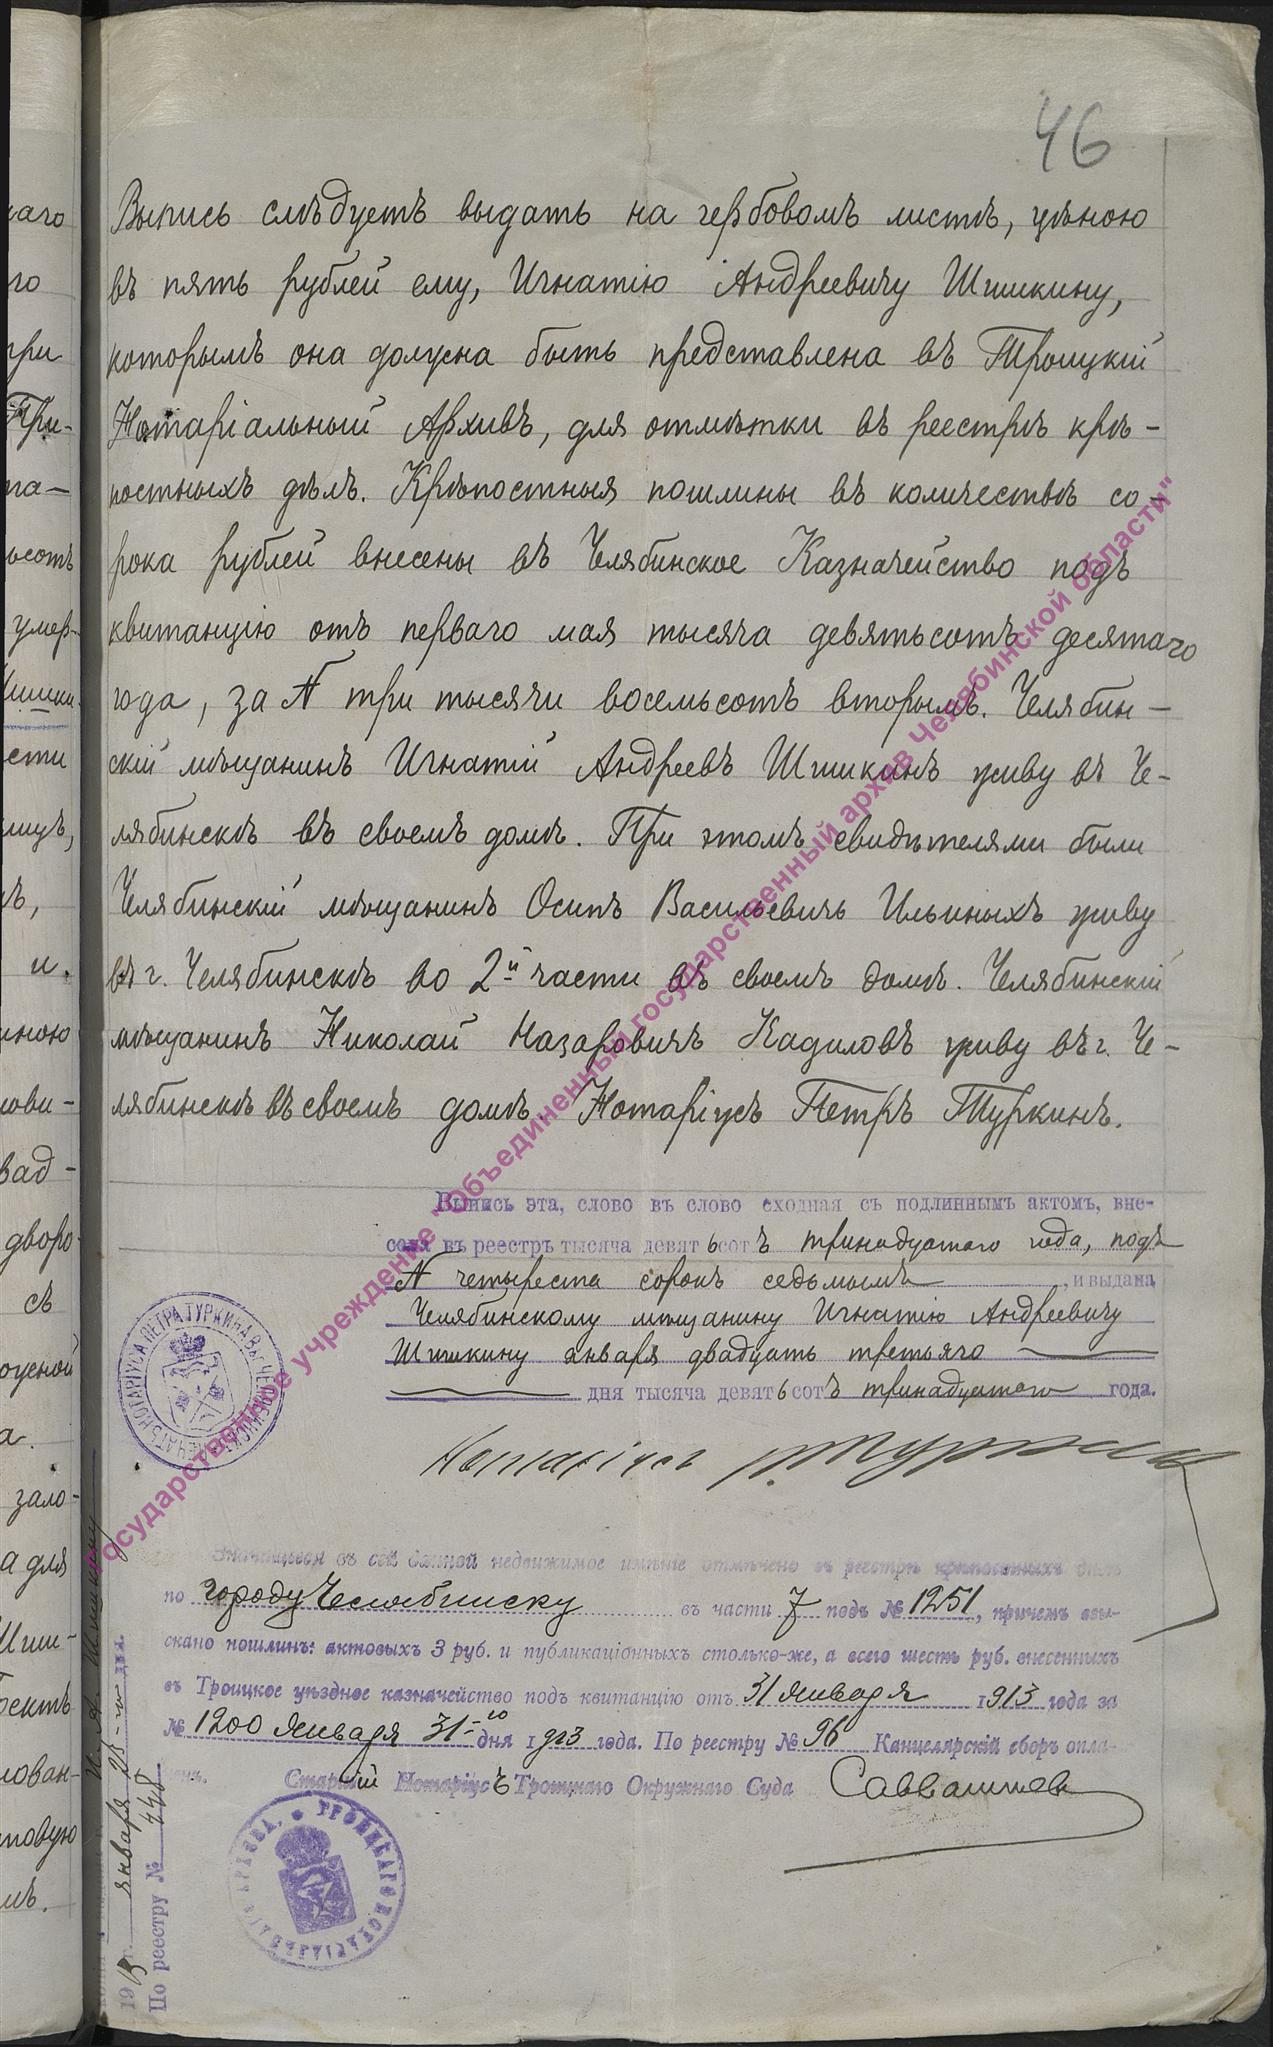 46
Выпись слѣдуетъ выдать на гербовомъ листѣ, цѣною
въ пять рублей ему, Игнатію Андреевичу Шишкину,
которымъ она должна быть представлена въ Троицкій
Нотаріальный Архивъ, для отмѣтки въ реестрѣ крѣ-
постныхъ дѣлъ. Крѣпостныя пошлины въ количествѣ со-
рока рублей внесены въ Челябинское Казначейство подъ
квитанцію отъ перваго мая тысяча девятьсотъ десятаго
года, за № три тысячи восемьсотъ вторымъ. Челябин-
скій мѣщанинъ Игнатій Андреевъ Шишкинъ живу въ Че-
лябинскѣ въ своемъ домѣ. При этомъ свидѣтелями были
Челябинскій мѣщанинъ Осипъ Васильевичъ Ильиныхъ живу
въ г. Челябинскѣ во 2й части въ своемъ домѣ. Челябинскій
мѣщанинъ Николай Назаровичъ Кадиловъ живу въ г. Че-
лябинскѣ въ своемъ домѣ. Нотаріусъ Петръ Туркинъ.
Выпись эта, слово въ слово сходная съ подлиннымъ актомъ, вне-
сена въ реестръ тысяча девятьсотъ тринадцатаго года, подъ
№ четыреста сорокъ седьмымъ, и выдана
Челябинскому мѣщанину Игнатію Андреевичу
Шишкину января двадцать третьяго
дня тысяча девятьсотъ тринадцатаго года.
Нотаріусъ П. Туркинъ
Значащееся въ сей данной недвижимое имѣніе отмѣчено въ реестрѣ крѣпостныхъ дѣлъ
по городу Челябинску въ части 7 подъ № 1251, причемъ взы-
скано пошлинъ: актовыхъ 3 руб. и публикаціонныхъ столько-же, а всего шесть руб. внесенныхъ
въ Троицкое уѣздное казначейство подъ квитанцію отъ 31 января 1913 года за
№ 1200 Января 31-го дня 1913 года. По реестру № 96 Канцелярскій сборъ опла-
ченъ. Старшій Нотаріусъ Троицкаго Окружнаго Суда
И. А. Шишкину
января 23-го дня
1913
По реестру № 448
Государственное учреждение "Объединенный государственный архив Челябинской области"